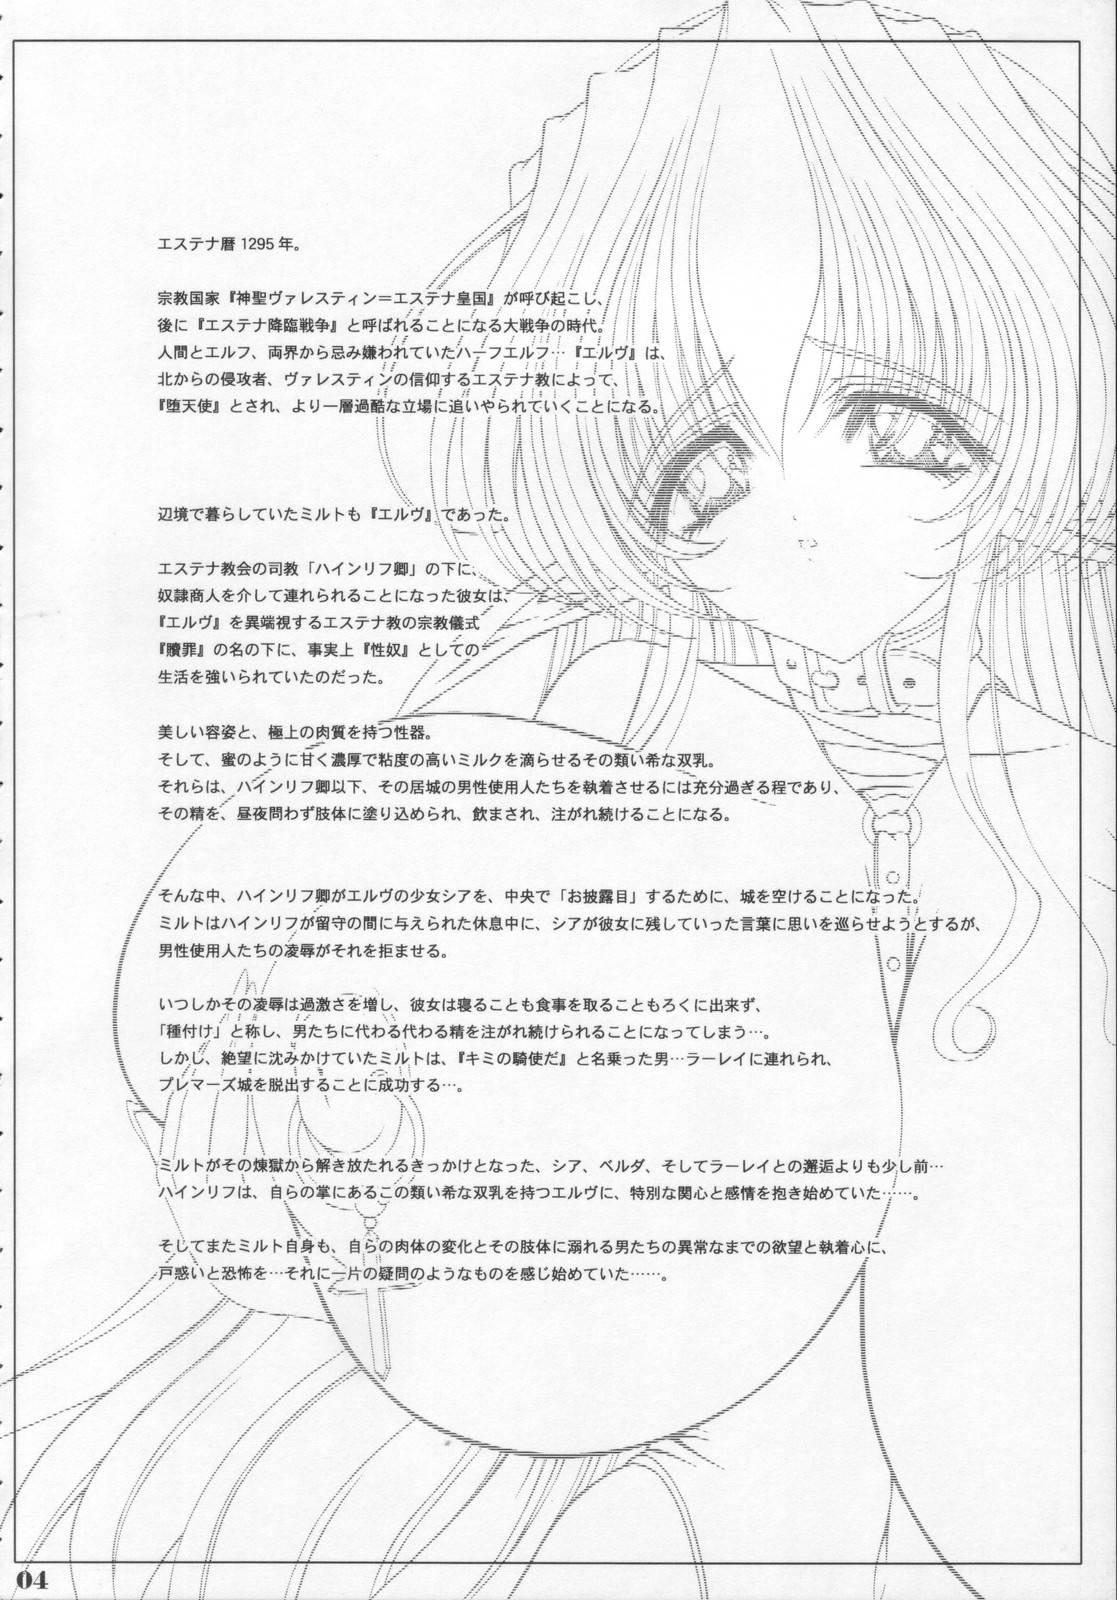 エステナ暦 1295 年。
宗教国家『神聖ヴァレスティン＝エステナ皇国』が呼び起こし、
後に『エステナ降臨戦争』と呼ばれることになる大戦争の時代。
人間とエルフ、両界から忌み嫌われていたハーフエルフ…『エルヴ』は、
北からの侵攻者、ヴァレスティンの信仰するエステナ教によって、
『堕天使』とされ、より一層過酷な立場に追いやられていくことになる。
辺境で暮らしていたミルトも『エルヴ』であった。
エステナ教会の司教「ハインリフ卿」の下に、
奴隷商人を介して連れられることになった彼女は、
『エルヴ』を異端視するエステナ教の宗教儀式
『贖罪』の名の下に、事実上『性奴』としての
生活を強いられていたのだった。
美しい容姿と、極上の肉質を持つ性器。
そして、蜜のように甘く濃厚で粘度の高いミルクを滴らせるその類い希な双乳。
それらは、ハインリフ卿以下、その居城の男性使用人たちを執着させるには充分過ぎる程であり、
その精を、昼夜問わず肢体に塗り込められ、飲まされ、注がれ続けることになる。
そんな中、ハインリフ卿がエルヴの少女シアを、中央で「お披露目」するために、城を空けることになった。
ミルトはハインリフが留守の間に与えられた休息中に、シアが彼女に残していった言葉に思いを巡らせようとするが、
男性使用人たちの凌辱がそれを拒ませる。
いつしかその凌辱は過激さを増し、彼女は寝ることも食事を取ることもろくに出来ず、
「種付け」と称し、男たちに代わる代わる精を注がれ続けられることになってしまう…。
しかし、絶望に沈みかけていたミルトは、『キミの騎使だ』と名乗った男…ラーレイに連れられ、
プレマーズ城を脱出することに成功する…。
ミルトがその煉獄から解き放たれるきっかけとなった、シア、ベルダ、そしてラーレイとの邂逅よりも少し前…
ハインリフは、自らの掌にあるこの類い希な双乳を持つエルヴに、特別な関心と感情を抱き始めていた……。
そしてまたミルト自身も、自らの肉体の変化とその肢体に溺れる男たちの異常なまでの欲望と執着心に、
戸惑いと恐怖を…それに一片の疑問のようなものを感じ始めていた……。
04